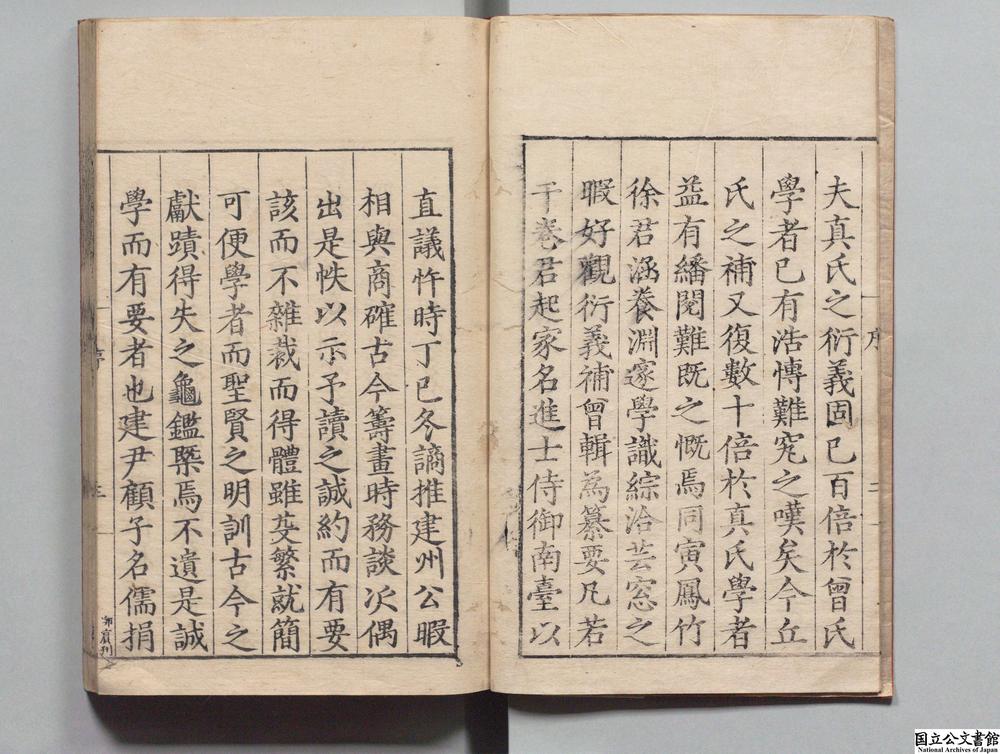 夫真氏之衍義固已百倍於曾氏
學者已有浩慱難䆒之嘆矣今丘
氏之補又復數十倍於真氏學者
益有繙閱難既之慨焉同寅鳳竹
徐君涵養淵邃學識綜洽芸窓之
暇好觀衍義補曾輯為纂要凡若
干巻君起家名進士侍御南臺以
序
二
直議忤時丁巳冬謫推建州公暇
相與商確古今籌畫時務談次偶
出是帙以示予讀之誠約而有要
該而不雜裁而得體雖芟繁就簡
可便學者而聖賢之明訓古今之
獻蹟得失之龜鑑槩焉不遺是誠
學而有要者也建尹顧子名儒捐
序
三
国立公文書館
National Archives of Japan